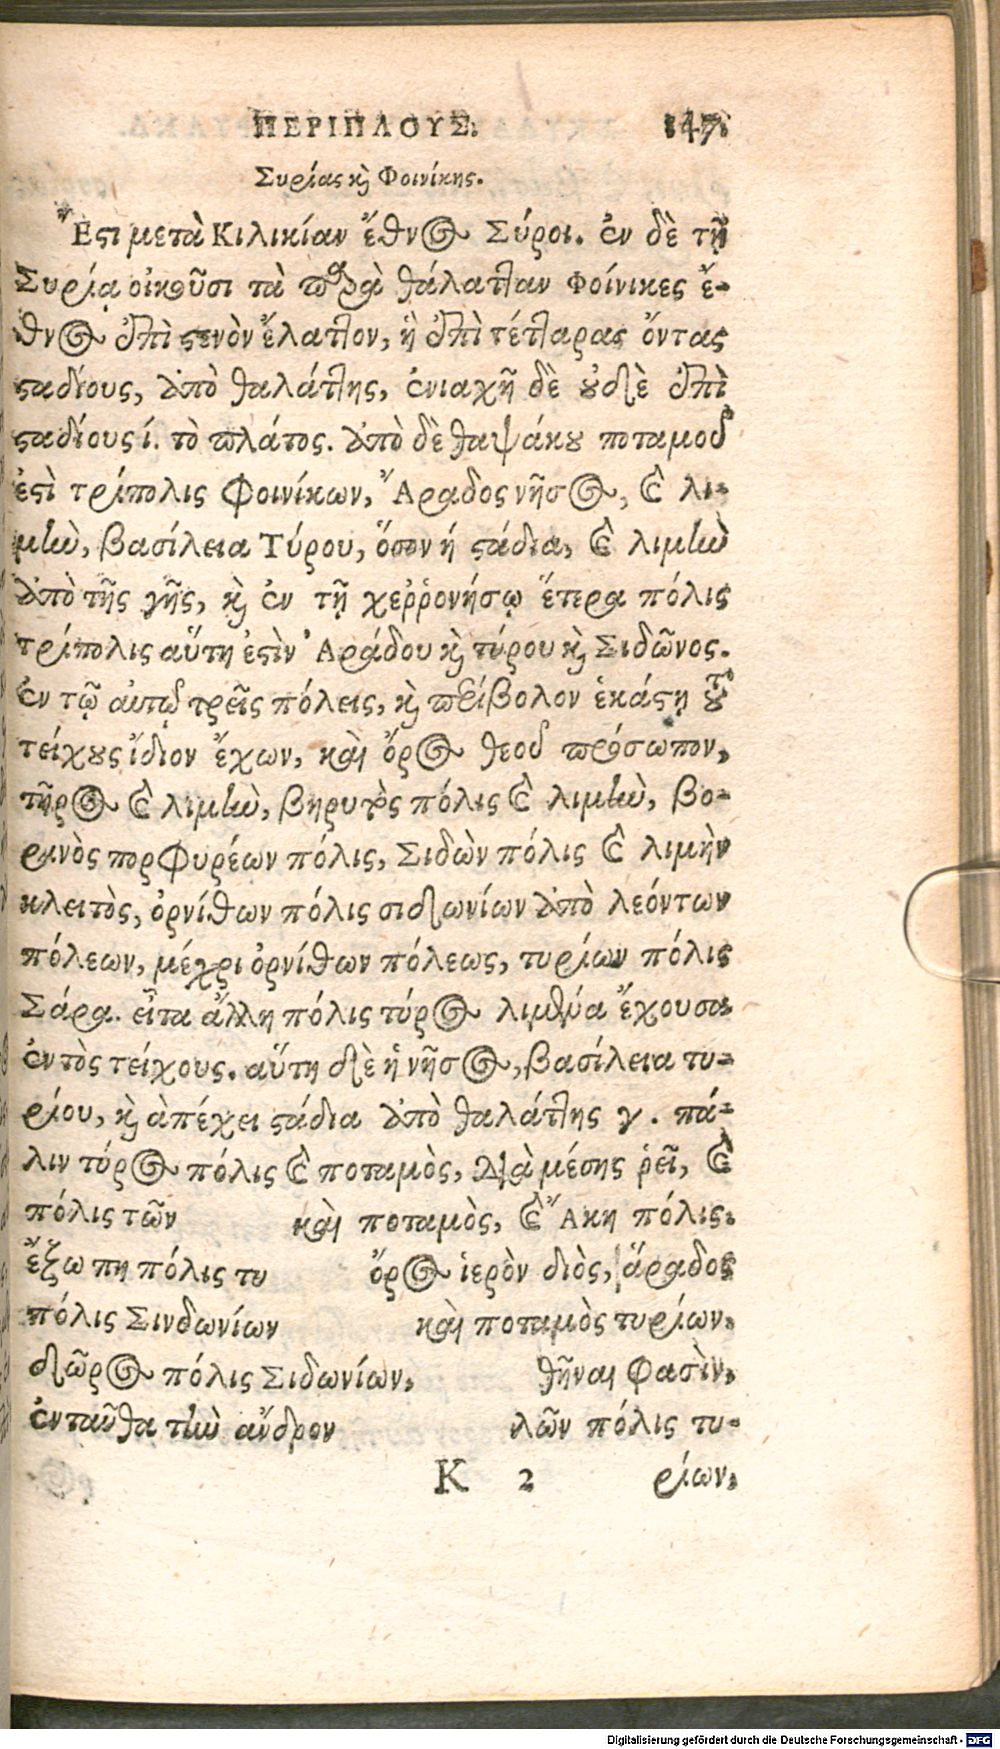 ΠΕΡΙΠΛΟΥΣ. 147.
Συρίας καὶ Φοινίκης.
Ἔστι μετὰ Κιλικίαν ἔθνος Σύροι. ἐν δὲ τῇ
Συρίᾳ οἰκοῦσι τὰ παρὰ θάλατταν Φοίνικες ἔ-
θνος ἐπὶ στενὸν ἔλαττον, ἢ ἐπὶ τέτταρας ὄντας
σταδίους, ἀπὸ θαλάττης, ἐνιαχῆ δὲ οὐδὲ ἐπὶ
σταδίους ί. τὸ πλάτος. ἀπὸ δὲ θαψάκου ποταμοῦ
ἐστὶ τρίπολις Φοινίκων, Ἄραδος νῆσος, καὶ λι-
μὴν, βασίλεια Τύρου, ὅσον ή στάδια, καὶ λιμὴν
ἀπὸ τῆς γῆς, καὶ ἐν τῇ χερῤονήσῳ ἕτερα πόλις
τρίπολις αὕτη ἐστὶν Ἀράδου καὶ τύρου καὶ Σιδῶνος.
ἐν τῷ αὐτῷ τρεῖς πόλεις, καὶ περίβολον ἑκάστη τοῦ
τείχους ἴδιον ἔχων, καὶ ὄρος θεοῦ πρόσωπον,
τῆρος καὶ λιμὴν, βηρυτὸς πόλις καὶ λιμὴν, βο-
ρινὸς πορφυρέων πόλις, Σιδὼν πόλις καὶ λιμὴν
κλειτὸς, ὀρνίθων πόλις σιδωνίων ἀπὸ λεόντων
πόλεων, μέχρι ὀρνίθων πόλεως, τυρίων πόλις
Σάρα. εἶτα ἄλλη πόλις τύρος λιμένα ἔχουσα
ἐντὸς τείχους. αὕτη δὲ ἡ νῆσος, βασίλεια τυ-
ρίου, καὶ ἀπέχει στάδια ἀπὸ θαλάττης γ. πά-
λιν τύρος πόλις καὶ ποταμὸς, διὰ μέσης ῥεῖ, καὶ
πόλις τῶν καὶ ποταμὸς, καὶ Ἄκη πόλις.
ἔξω πη πόλις τυ ὄρος ἱερὸν διὸς, ἄραδος
πόλις Σινδωνίων καὶ ποταμὸς τυρίων.
δῶρος πόλις Σιδωνίων, θῆναι φασὶν,
ἐνταῦθα τὴν ἄνδρον λῶν πόλις τυ-
Κ 2 ρίων,
Digitalisierung gefördert durch die Deutsche Forschungsgemeinschaft - DFG